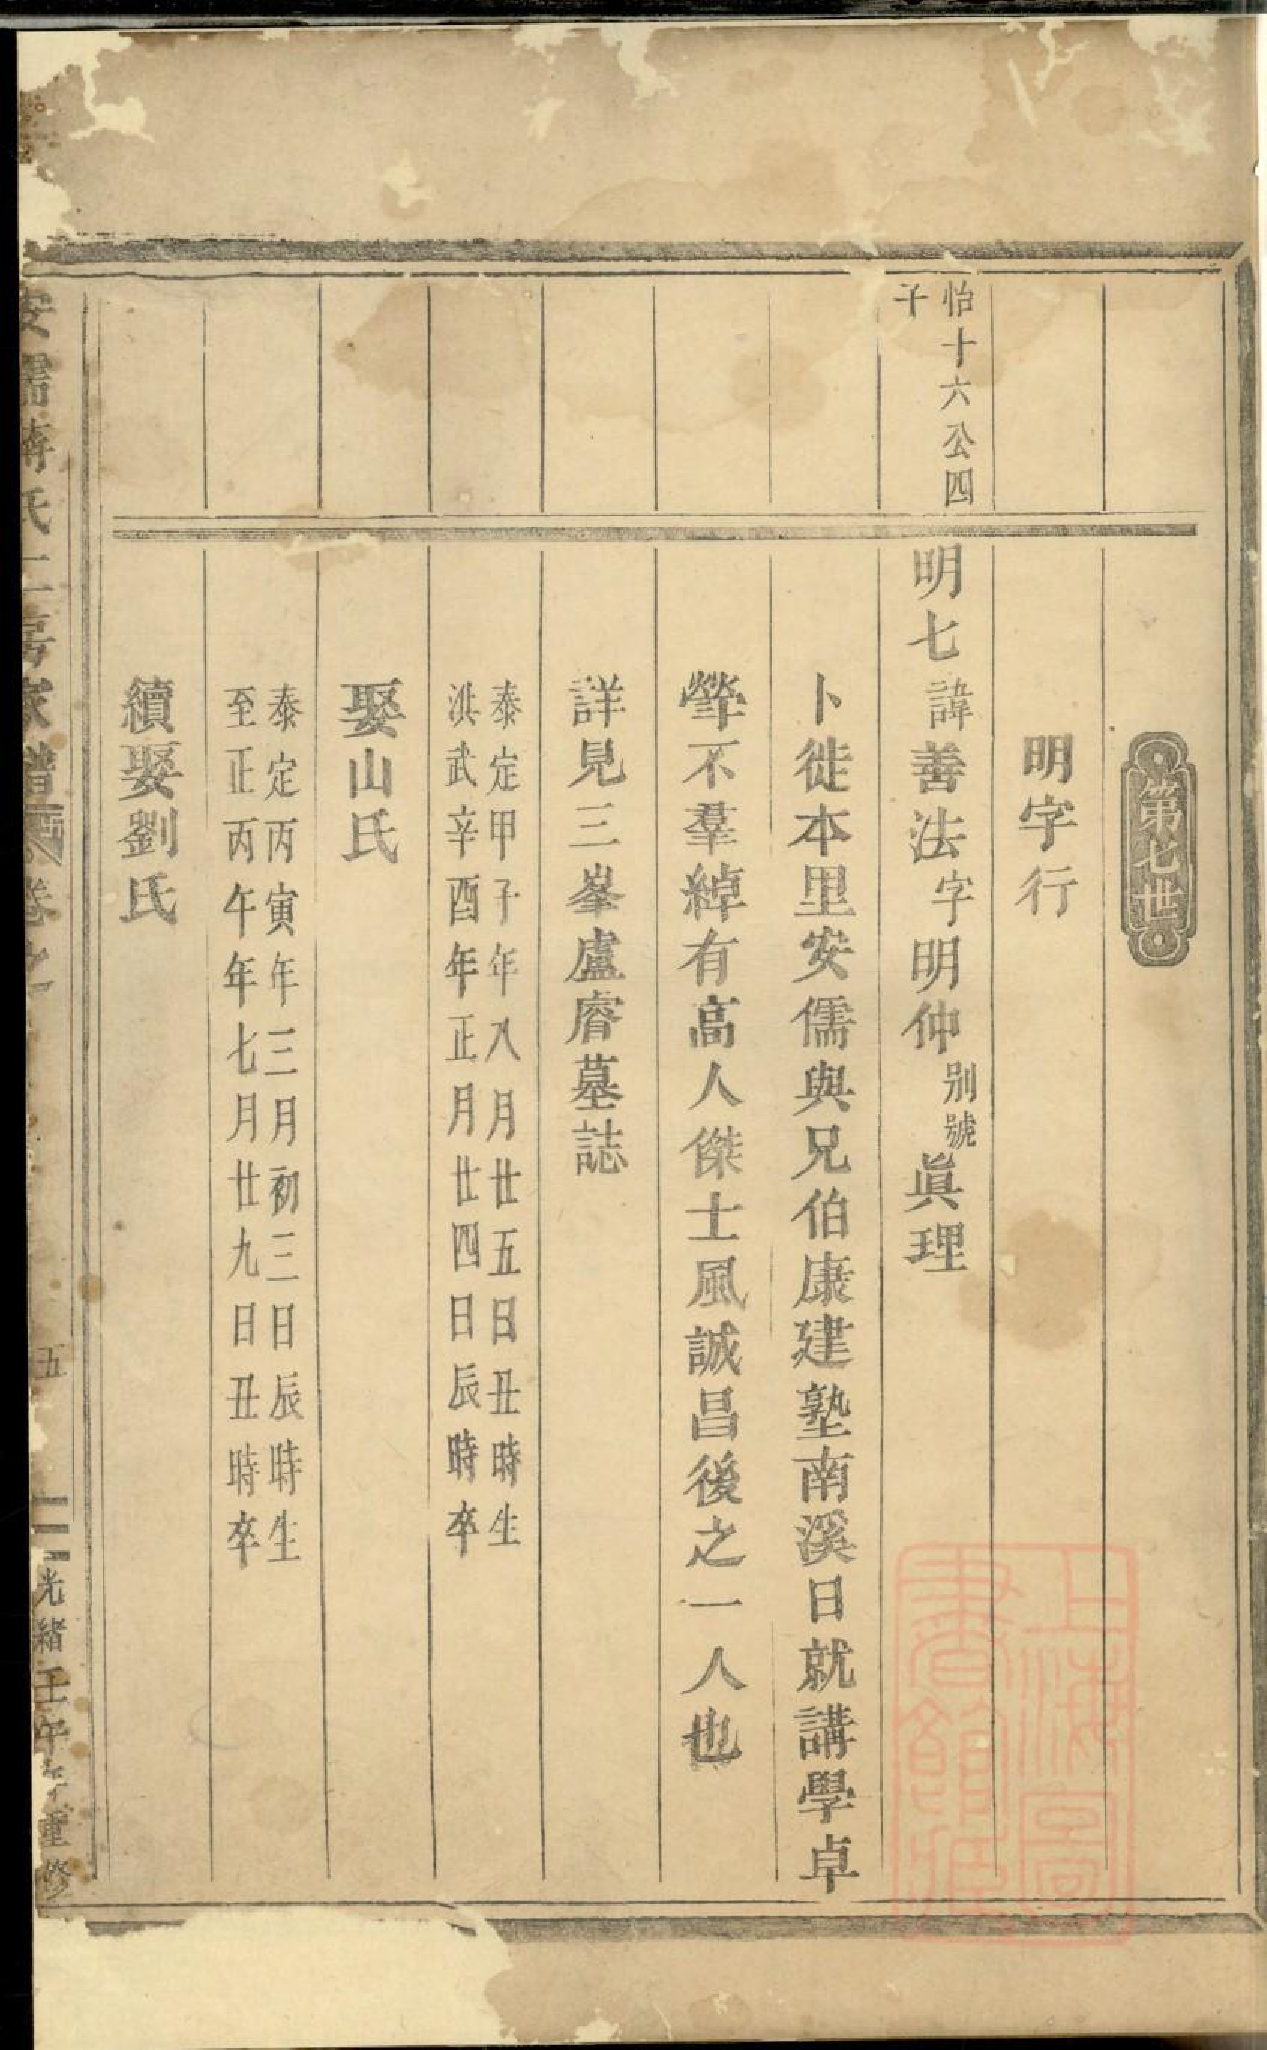 第七世
明字行
怡十六公四
子
明七諱善法字明仲别號眞理
卜徙本里安儒與兄伯康建塾南溪日就講學卓
犖不羣綽有高人傑士風誠昌後之一人也
詳見三峯盧睿墓誌
泰定甲子年八月廿五日丑時生
洪武辛酉年正月廿四日辰時卒
娶山氏
泰定丙寅年三月初三日辰時生
至正丙午年七月廿九日丑時卒
續娶劉氏
安儒蔣氏二房家譜 卷之
五
光緒壬午年重修
上海圖
書館藏